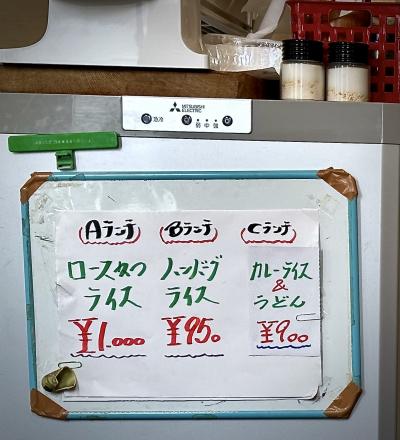 MITSUBISHI
ELECTRIC
急冷
弱 中 強
Aランチ
ロースかつ
ライス
¥1.000
Bランチ
ハンバーグ
ライス
¥950
Cランチ
カレーライス
&
うどん
¥900